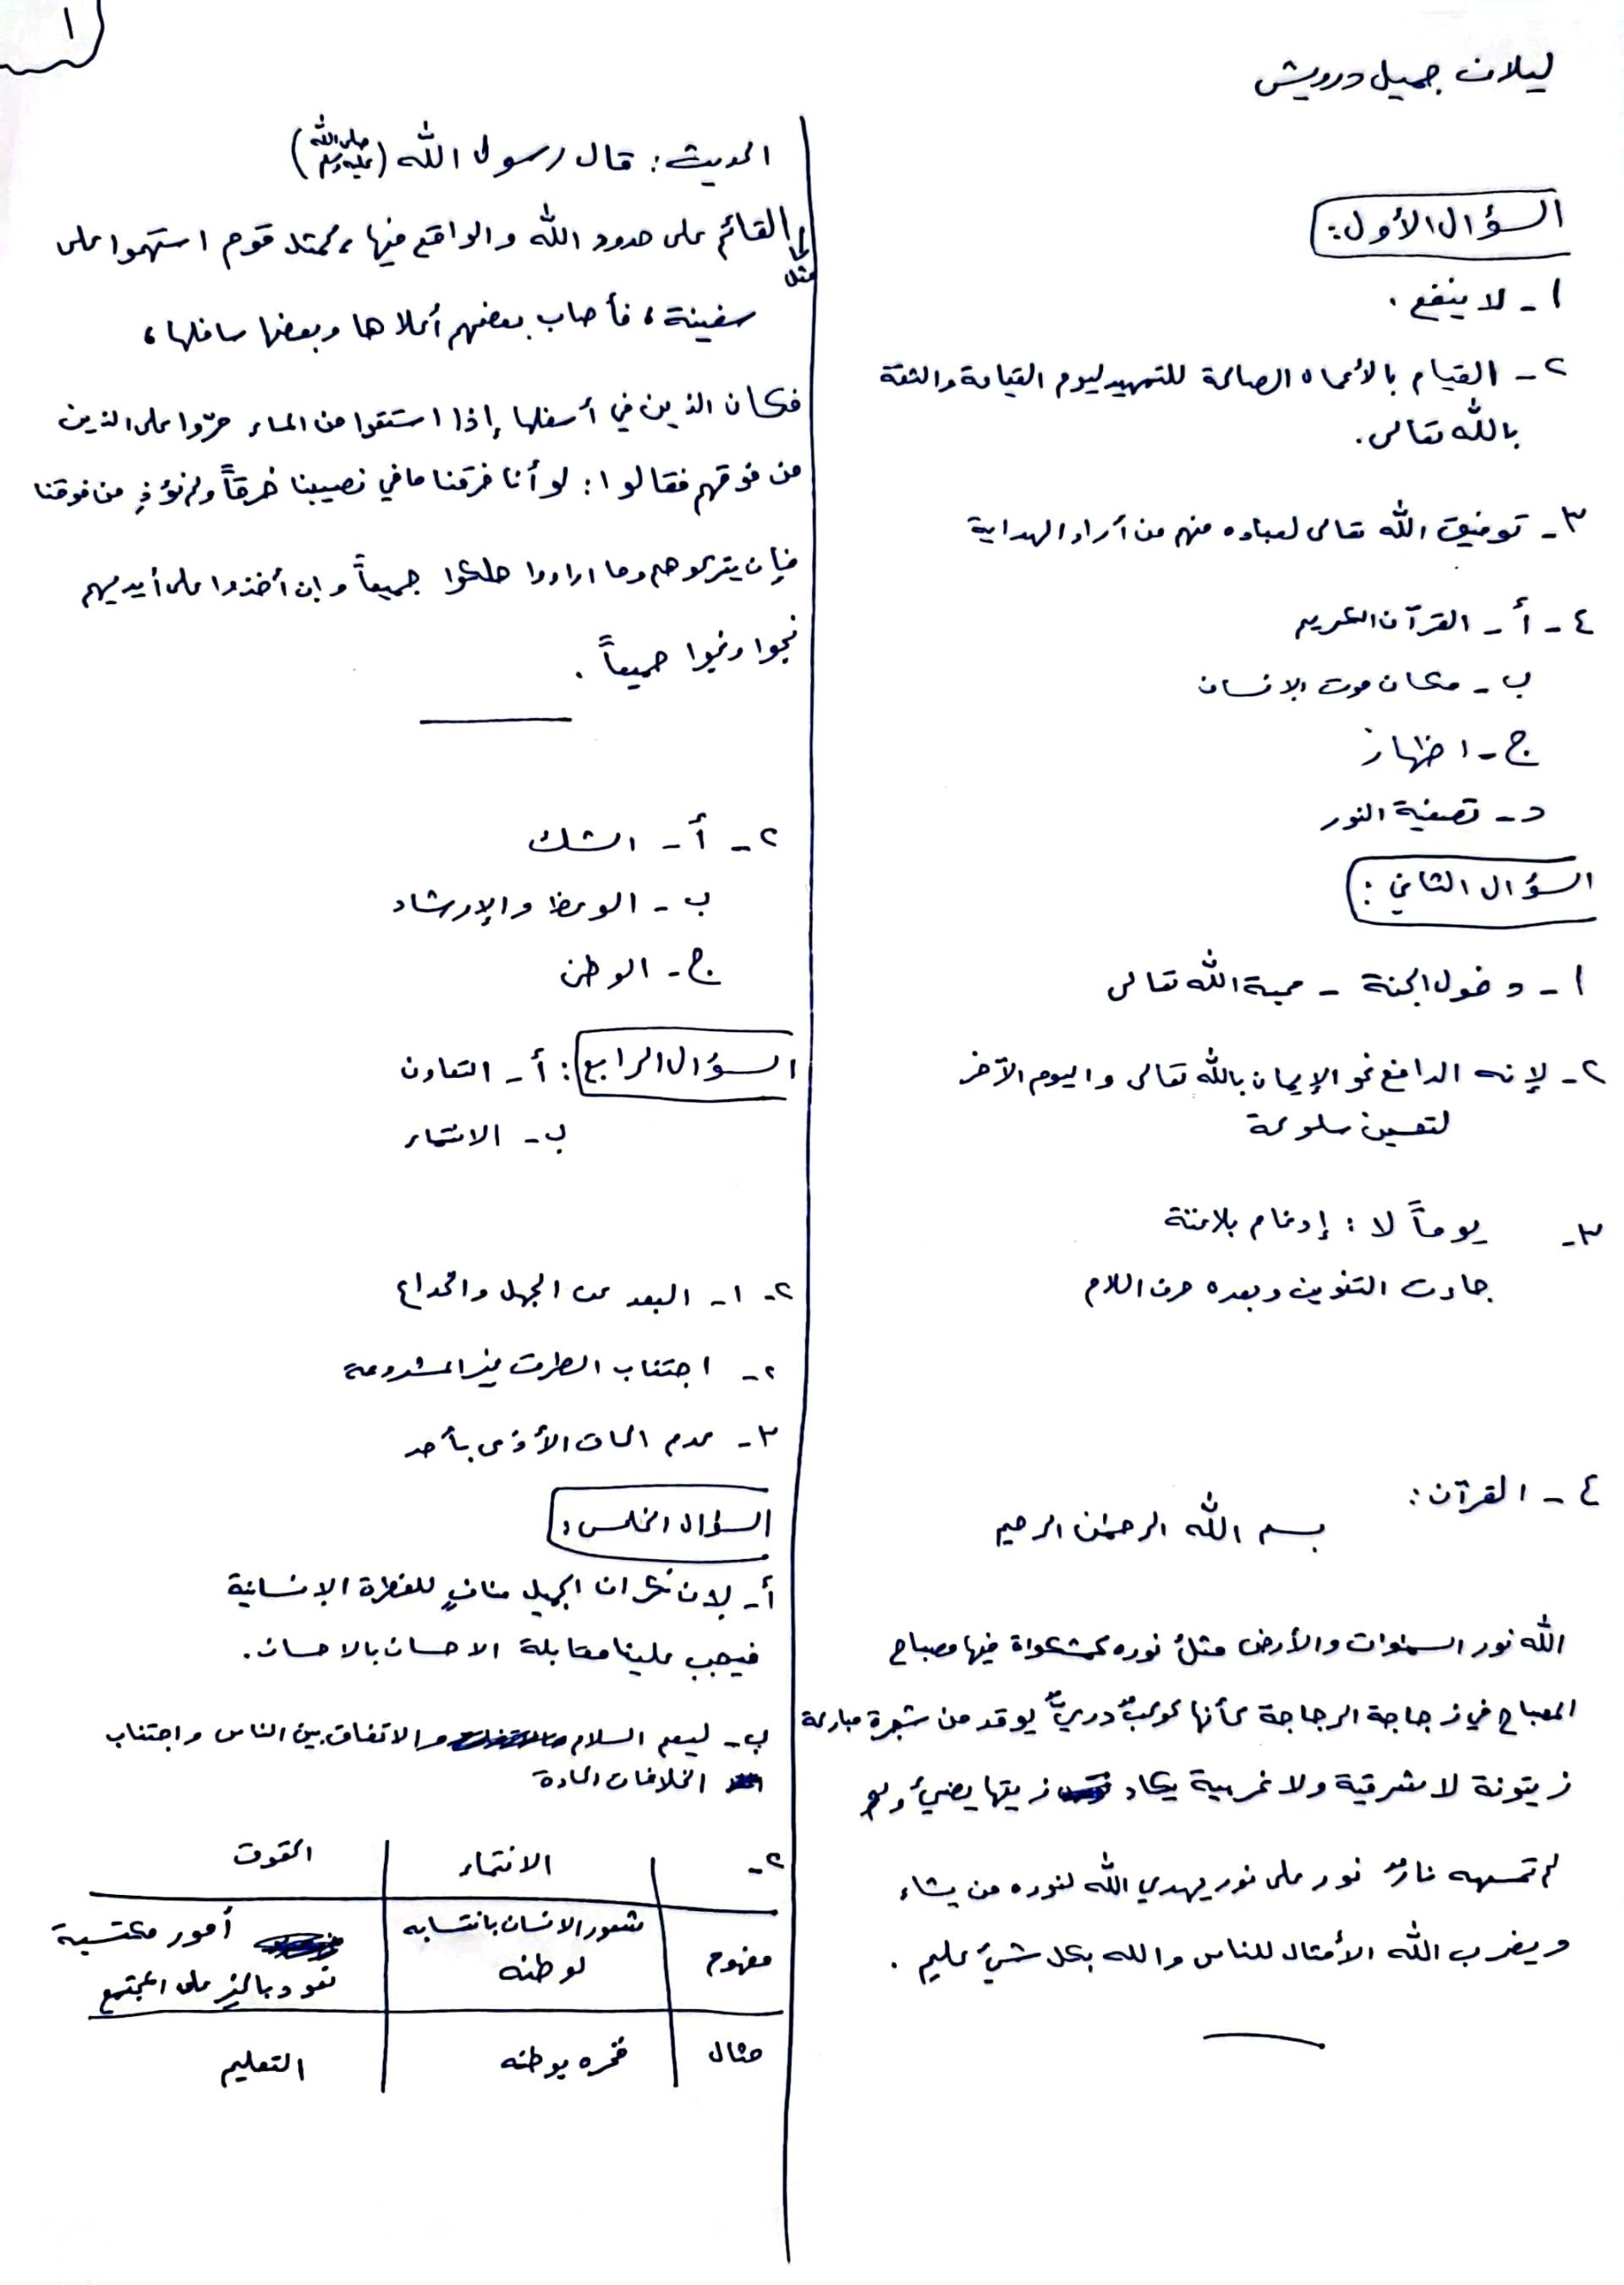 ١
ليلاف جميل درويش
السؤال الأول:
١ - لا ينفع .
٢ - القيام بالأعمال الصالحة للتمهيد ليوم القيامة والثقة
بالله تعالى.
٣ - توفيق الله تعالى لعباده منهم من أراد الهداية
٤ - أ - القرآن الكريم
ب - مكان موت الإنسان
ج - إظهار
د - تصفية النور
السؤال الثاني :
١ - دخول الجنة - محبة الله تعالى
٢ - لإنه الدافع نحو الإيمان بالله تعالى واليوم الآخر
لتحسين سلوكه
٣ - يوماً لا : إدغام بلا غنة
جاءت التنوين وبعده حرف اللام
٤ - القرآن :
بسم الله الرحمٰن الرحيم
الله نور السمٰوات والأرض مثلُ نوره كمشكواة فيها مصباح
المصباح في زجاجة الزجاجة كأنها كوكبٌ دريٌ يوقد من شجرة مباركة
زيتونة لا شرقية ولا غربية يكاد زيتها يضيءُ ولو
لم تمسهه نارٌ نور على نور يهدي الله لنوره من يشاء
ويضرب الله الأمثال للناس والله بكل شيءٍ عليم .
الحديث : قال رسول الله (صلى الله عليه وسلم)
مثل القائم على حدود الله والواقع فيها ، كمثل قوم استهموا على
سفينة ، فأصاب بعضهم أعلاها وبعضها سافلها ،
فكان الذين في أسفلها إذا استقوا من الماء مرّوا على الذين
من فوقهم فقالوا : لو أنا خرقنا ما في نصيبنا خرقاً ولم نؤذِ من فوقنا
فإن يتركوهم وما ارادوا هلكوا جميعاً وإن أخذوا على أيديهم
نجوا ونجوا جميعاً .
٢ - أ - الشك
ب - الوعظ والإرشاد
ج - الوطن
السؤال الرابع : أ - التعاون
ب - الانتماء
٢ - ١ - البعد عن الجهل والخداع
٢ - اجتناب الطرق غير المشروعة
٣ - عدم الحاق الأذى بأحد
السؤال الخامس :
أ - لإن نكران الجميل منافٍ للفطرة الإنسانية
فيجب علينا مقابلة الاحسان بالاحسان .
ب - ليعم السلام والاتفاق بين الناس واجتناب
الخلافات الحادة
٢ - الانتماء القوة
مفهوم شعور الانسان بانتسابه لوطنه أمور مكتسبة تعود بالخير على المجتمع
مثال فخره بوطنه التعليم